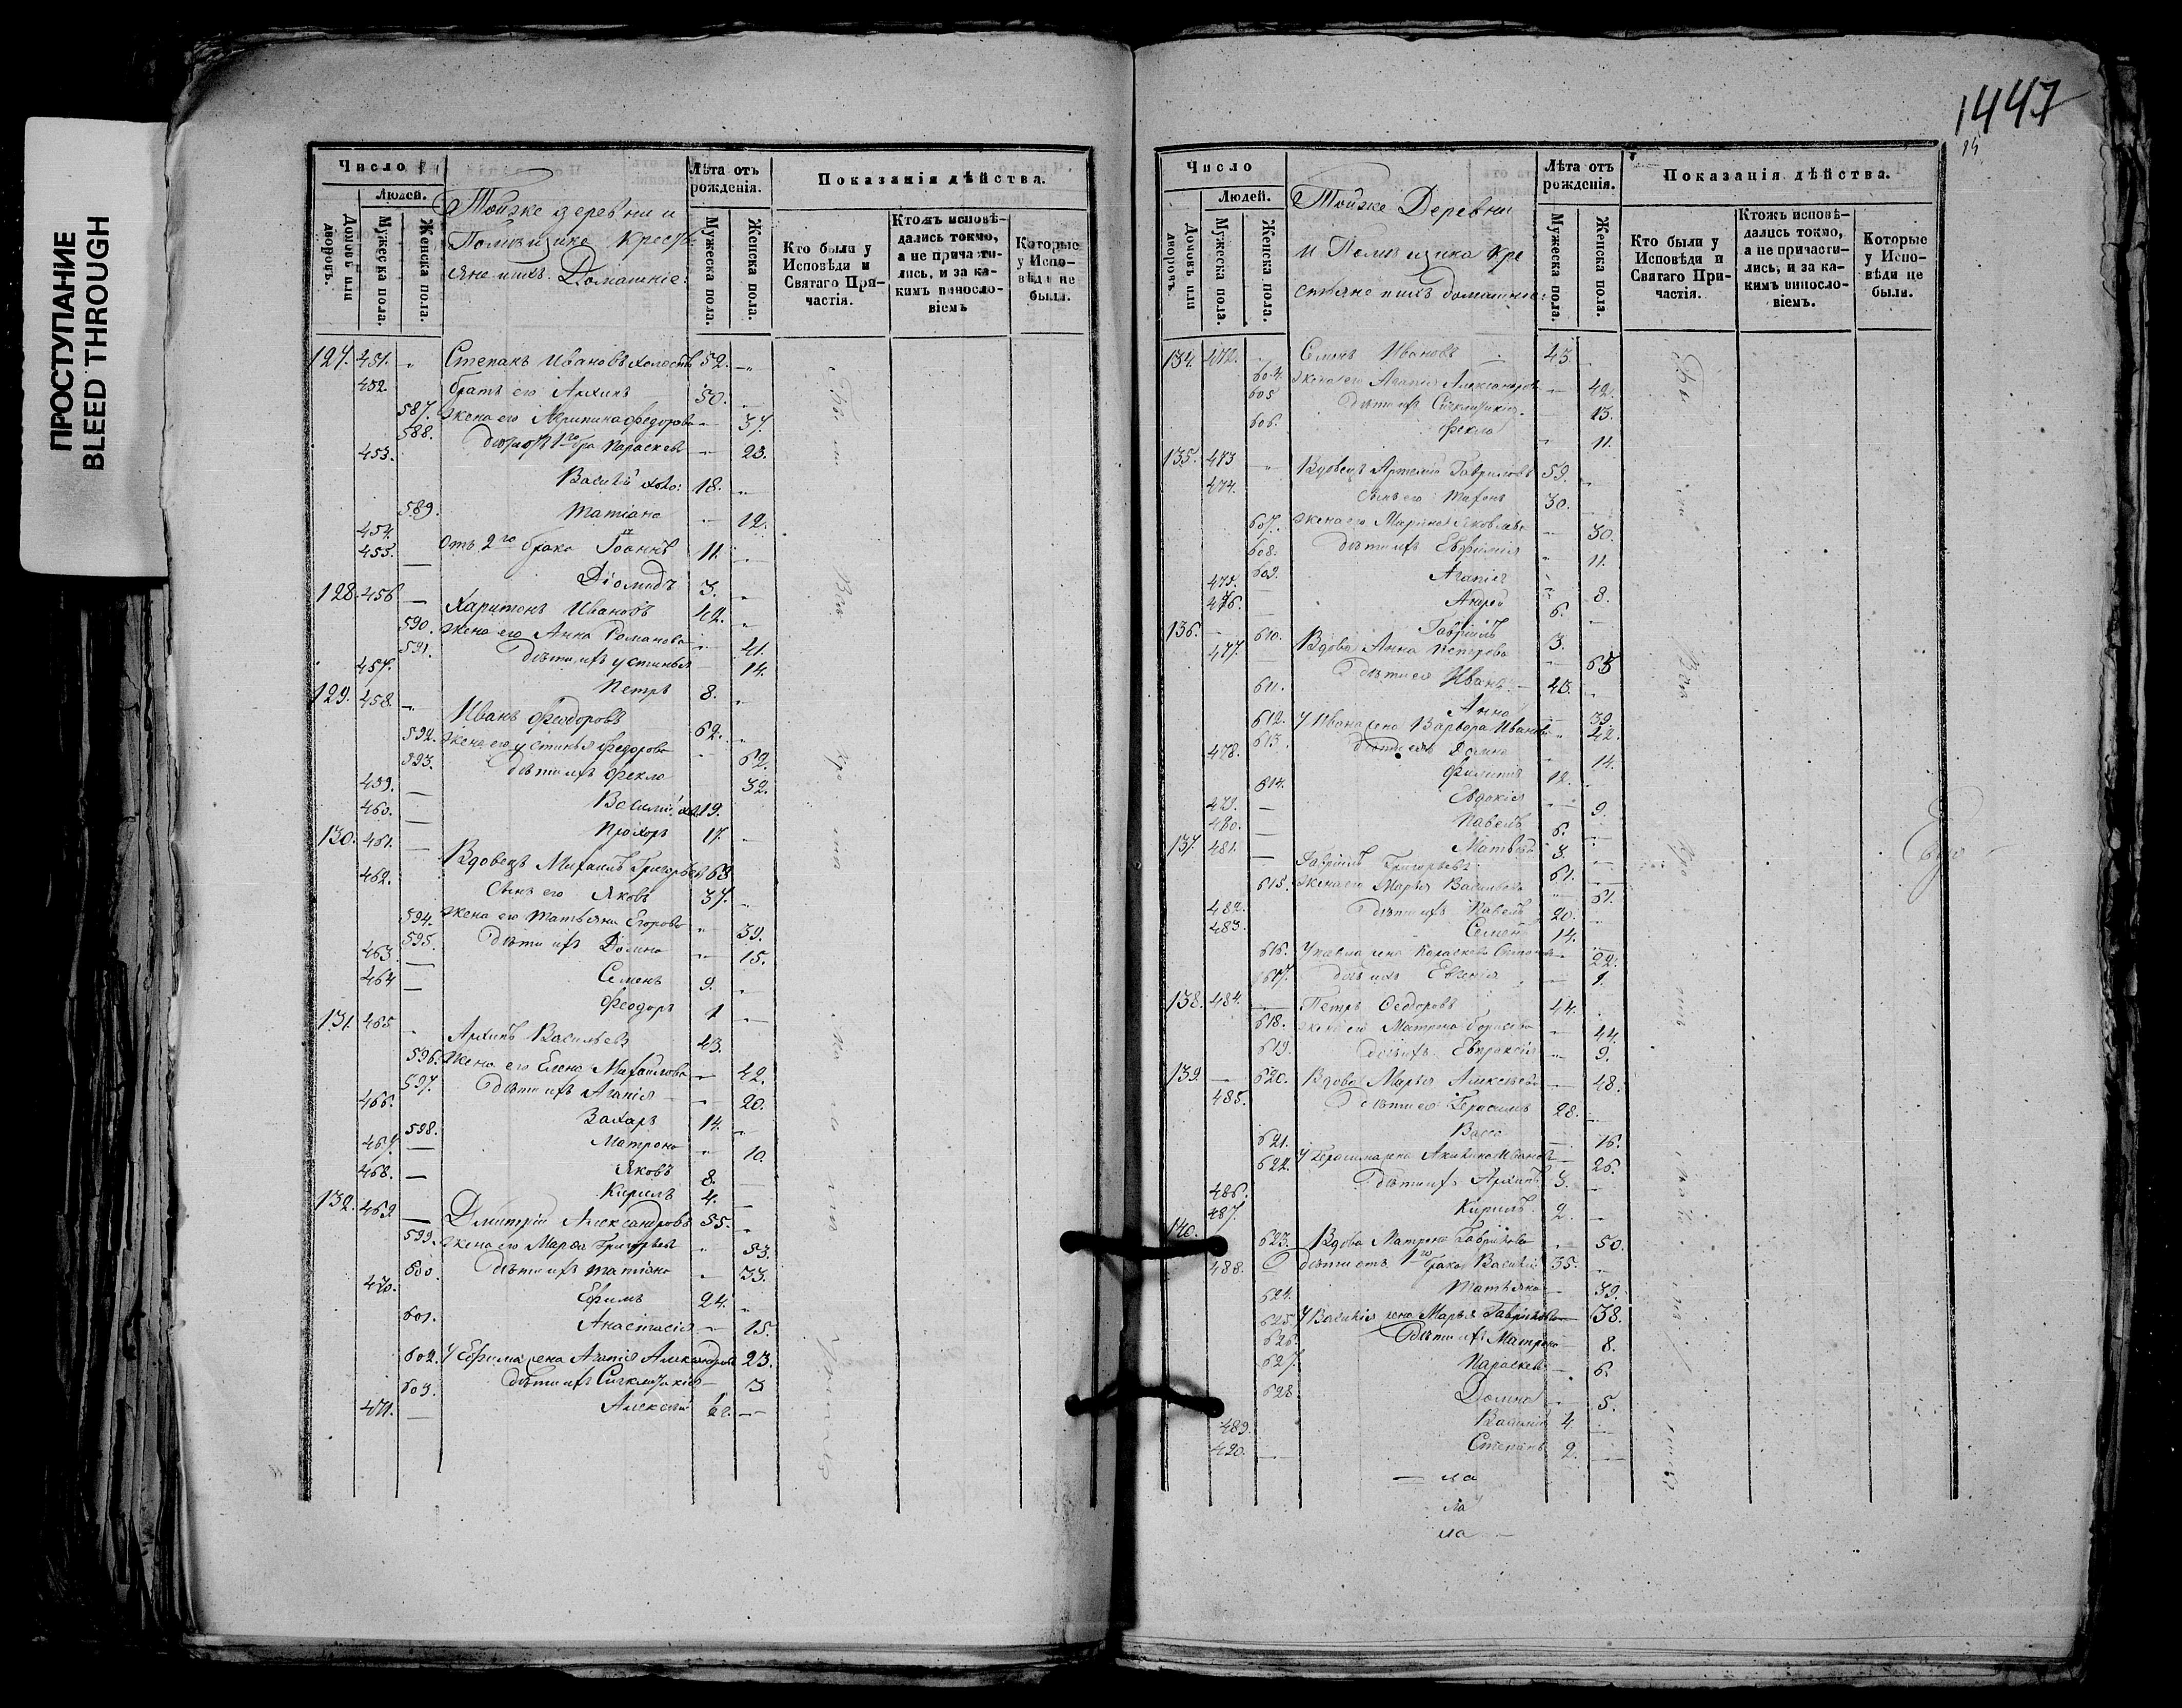 ПРОСТУПАНИЕ
BLEED THROUGH
Число
Людей.
Домовъ или дворовъ.
Мужеска пола.
Женска пола.
Тойже деревни и
Помѣщика Кресть
яне и ихъ Домашніе:
Лѣта отъ рожденія.
Мужеска пола.
Женска пола.
Показанія дѣйства.
Кто были у Исповѣди и Святаго Причастія.
Ктожъ исповѣдались токмо, а не причастились, и за какимъ винословіемъ
Которые у Исповѣди не были.
127. 451. „ Степанъ Ивановъ холостъ 52. „
452. братъ его Архипъ 50.
587. жена его Акрипина Федорова — 37.
588. дѣти отъ 1го бра Параскева — 23.
453. Василій холо: 18. „
589. Татіана — 12.
454. Отъ 2го брака Іоаннъ 11. —
455. — Діомидъ 3. „
128. 456 — Харитонъ Ивановъ 42. „
590. жена его Анна Романова — 41.
591. дѣти ихъ Устинья — 14.
457. Петръ 8. „
129. 458. „ Иванъ Феодоровъ 62. „
592. жена его Устинья Федорова — 62.
593. дѣти ихъ Фекла 32.
459. — Василій хол. 19.
460. — Прохоръ 17. —
130. 461. — Вдовецъ Михаилъ Григорьевъ 63
462. Сынъ его Яковъ 37. „
594. жена его Татьяна Егорова „ 39.
595. дѣти ихъ Домна — 15.
463. — Семенъ 9. „
464 — Феодоръ 1 —
131. 465 „ Архипъ Васильевъ 43.
596. жена его Елена Михайлова — 42.
597. дѣти ихъ Агапія — 20.
466. Захаръ 14. —
598. Матрона „ 10.
467. — Яковъ 8. —
468. — Кирилъ 4. —
132. 469 — Дмитрій Александровъ 55. „
599. жена его Марѳа Григорьева „ 53.
600. дѣти ихъ Татіана „ 33.
470. Ефимъ 24. „
601. Анастасія — 15.
602. У Ефима жена Агапія Александров 23.
603. дѣти ихъ Сигклитикія — 3
471. — Алексѣй —
Были
Вси
1447
Число
Людей.
Домовъ или дворовъ.
Мужеска пола.
Женска пола.
Тойже Деревни
и Помѣщика Кре
стьяне и ихъ домашніе:
Лѣта отъ рожденія.
Мужеска пола.
Женска пола.
Показанія дѣйства.
Кто были у Исповѣди и Святаго Причастія.
Ктожъ исповѣдались токмо, а не причастились, и за какимъ винословіемъ.
Которые у Исповѣди не были.
134. 472. „ Семенъ Ивановъ 43. „
604. жена его Агапія Александров — 42.
605 дѣти ихъ Сигклитикія — 13.
606. Фекла „ 11.
135. 473 „ Вдовецъ Артемій Гавриловъ 59. „
474. Сынъ его 30. —
607. жена его Марина Яковлева — 30.
608. дѣти ихъ Евфимія „ 11.
609. Агапія „ 8.
475. — Андрей 6. „
476. — Гавріилъ 3.
136. — 610. Вдова Анна Петрова — 63
477. — дѣти ея Иванъ 43. „
611. Анна — 39.
612. У Ивана жена Варвара Иванов „ 42.
613. дѣти ихъ Домна „ 14.
478. Филиппъ 12. „
614. Евдокія — 9.
479. — Павелъ 6. „
480. — Матвѣй 3. „
137. 481. — Гавріилъ Григорьевъ 61. —
615. жена его Марья Васильева — 61.
482. дѣти ихъ Павелъ 20. —
483. Семенъ 14. —
616. У Павла жена Параскева — 22.
617. дочь ихъ Евгенія — 1.
138. 484. — Петръ Ѳеодоровъ 44. „
618. жена его Матрона Борисова — 44.
619. дочь ихъ Евпраксія — 9.
139. — 620. Вдова Марья Алексѣева — 48.
485. дѣти ея Герасимъ 28. —
621. Васса — 16.
622. У Герасима жена Акилина Иванов — 26.
486. дѣти ихъ Архипъ 3. —
487. Кирилъ 2. —
140. 623. Вдова Матрона Гаврилова — 50.
488. — дѣти отъ 1го брака Василій 35. „
624. Татьяна — 39.
625. У Василія жена Марья Гаврилова — 38.
626. дѣти ихъ Матрона — 8.
627. Параскева — 6.
628. Домна — 5.
489. Василій 4 —
490. — Степанъ 2. —
Бы
Вси